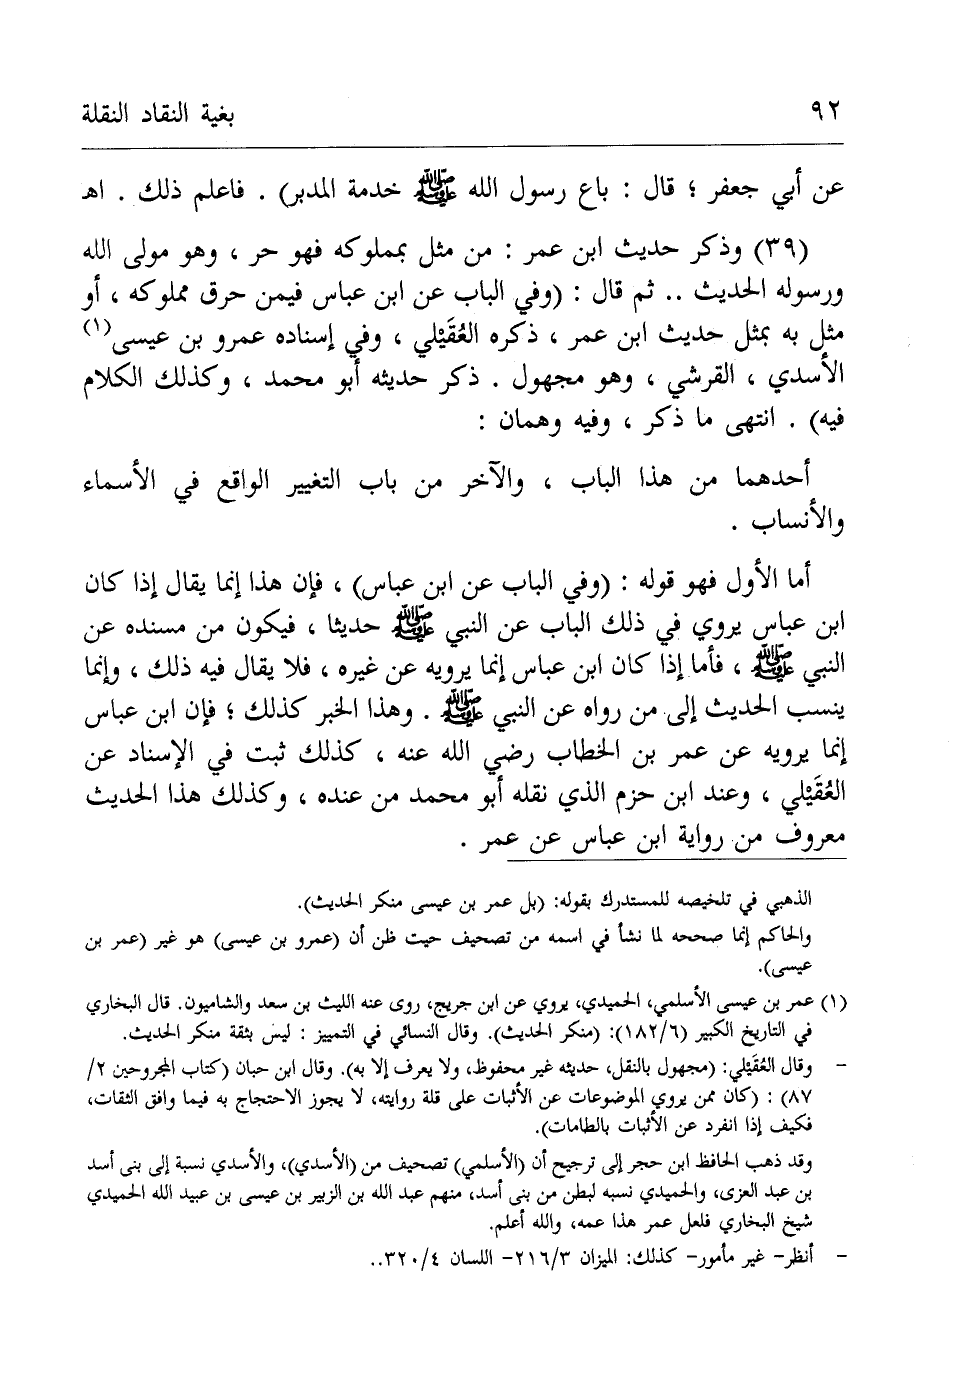 ٩٢
بغية النقاد النقلة
عن أبي جعفر ؛ قال : باع رسول الله ﷺ خدمة المدبر) . فاعلم ذلك . اهـ
(٣٩) وذكر حديث ابن عمر : من مثل بمملوكه فهو حر ، وهو مولى الله
ورسوله الحديث .. ثم قال : (وفي الباب عن ابن عباس فيمن حرق مملوكه ، أو
مثل به بمثل حديث ابن عمر ، ذكره العُقَيْلي ، وفي إسناده عمرو بن عيسى(١)
الأسدي ، القرشي ، وهو مجهول . ذكر حديثه أبو محمد ، وكذلك الكلام
فيه) . انتهى ما ذكر ، وفيه وهمان :
أحدهما من هذا الباب ، والآخر من باب التغيير الواقع في الأسماء
والأنساب .
أما الأول فهو قوله : (وفي الباب عن ابن عباس) ، فإن هذا إنما يقال إذا كان
ابن عباس يروي في ذلك الباب عن النبي ﷺ حديثا ، فيكون من مسنده عن
النبي ﷺ ، فأما إذا كان ابن عباس إنما يرويه عن غيره ، فلا يقال فيه ذلك ، وإنما
ينسب الحديث إلى من رواه عن النبي ﷺ . وهذا الخبر كذلك ؛ فإن ابن عباس
إنما يرويه عن عمر بن الخطاب رضي الله عنه ، كذلك ثبت في الإسناد عن
العُقَيْلي ، وعند ابن حزم الذي نقله أبو محمد من عنده ، وكذلك هذا الحديث
معروف من رواية ابن عباس عن عمر .
الذهبي في تلخيصه للمستدرك بقوله: (بل عمر بن عيسى منكر الحديث).
والحاكم إنما صححه لما نشأ في اسمه من تصحيف حيث ظن أن (عمرو بن عيسى) هو غير (عمر بن
عيسى).
(١) عمر بن عيسى الأسلمي، الحميدي، يروي عن ابن جريج، روى عنه الليث بن سعد والشاميون. قال البخاري
في التاريخ الكبير (١٨٢/٦): (منكر الحديث). وقال النسائي في التمييز : ليس بثقة منكر الحديث.
- وقال العُقَيْلي: (مجهول بالنقل، حديثه غير محفوظ، ولا يعرف إلا به). وقال ابن حبان (كتاب المجروحين ٢/
٨٧) : (كان ممن يروي الموضوعات عن الأثبات على قلة روايته، لا يجوز الاحتجاج به فيما وافق الثقات،
فكيف إذا انفرد عن الأثبات بالطامات).
وقد ذهب الحافظ ابن حجر إلى ترجيح أن (الأسلمي) تصحيف من (الأسدي)، والأسدي نسبة إلى بنى أسد
بن عبد العزى، والحميدي نسبه لبطن من بنى أسد، منهم عبد الله بن الزبير بن عيسى بن عبيد الله الحميدي
شيخ البخاري فلعل عمر هذا عمه، والله أعلم.
- أنظر- غير مأمور- كذلك: الميزان ٢١٦/٣- اللسان ٣٢٠/٤..